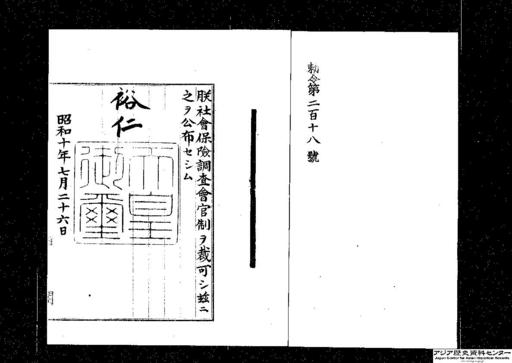 勅令第二百十八號
朕社會保險調査會官制ヲ裁可シ茲ニ
之ヲ公布セシム
裕仁
天皇
御璽
昭和十年七月二十六日
アジア歴史資料センター
Japan Center for Asian Historical Records